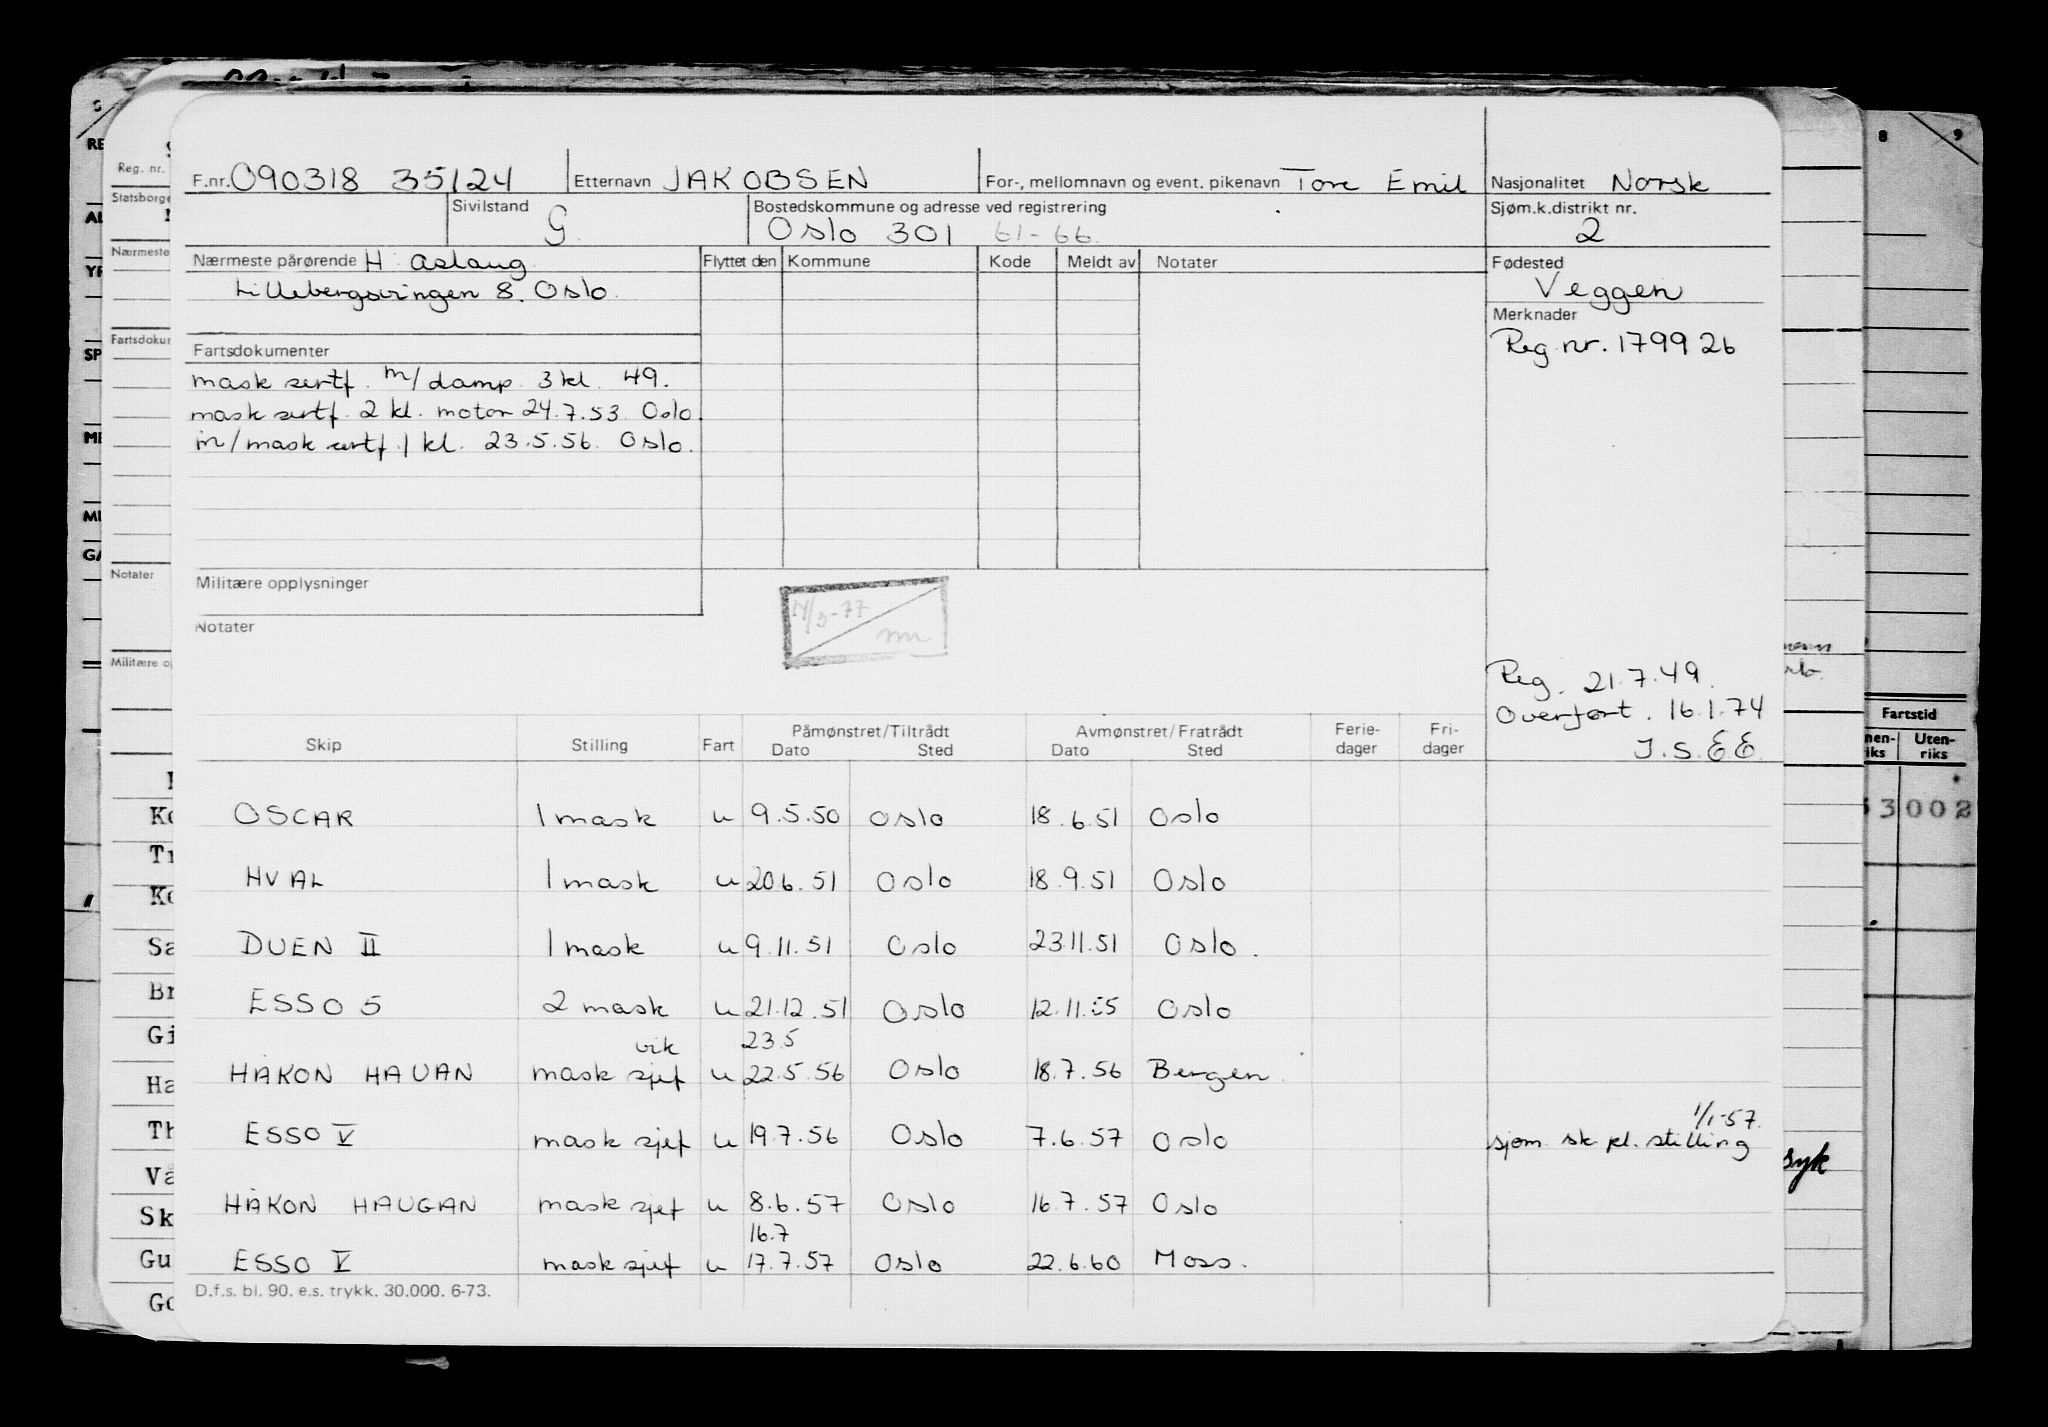 F.nr. 090318 35124 Etternavn JAKOBSEN For-, mellomnavn og event. pikenavn Tore Emil Nasjonalitet Norsk
Sivilstand G Bostedskommune og adresse ved registrering Oslo 301 61-66. Sjøm.k.distrikt nr. 2
Nærmeste pårørende H. Aslaug
Lillebergsvingen 8. Oslo.
Flyttet den Kommune Kode Meldt av Notater
Fødested
Veggen
Merknader
Reg. nr. 179926
Fartsdokumenter
mask sertf. m/damp. 3 kl. 49.
mask sertf. 2 kl. motor 24.7.53. Oslo.
m/mask sertf. 1 kl. 23.5.56. Oslo.
Militære opplysninger
Notater
14/3-77
Reg. 21.7.49.
Overført. 16.1.74
J.S.E.E.
Skip Stilling Fart Påmønstret/Tiltrådt Avmønstret/Fratrådt Ferie- Fri-
Dato Sted Dato Sted dager dager
OSCAR 1 mask u 9.5.50 Oslo 18.6.51 Oslo
HVAL 1 mask u 20.6.51 Oslo 18.9.51 Oslo
DUEN II 1 mask u 9.11.51 Oslo 23.11.51 Oslo.
ESSO 5 2 mask u 21.12.51 Oslo 12.11.55 Oslo
vik 23.5
HÅKON HAUAN mask sjef u 22.5.56 Oslo 18.7.56 Bergen
1/1-57.
ESSO V mask sjef u 19.7.56 Oslo 7.6.57 Oslo sjøm. sk. pl. stilling
HÅKON HAUGAN mask sjef u 8.6.57 Oslo 16.7.57 Oslo
16.7
ESSO V mask sjef u 17.7.57 Oslo 22.6.60 Moss.
D.f.s. bl. 90. e.s. trykk. 30.000. 6-73.
Reg. nr.
Statsborge
Nærmeste
Fartsdokum
Notater
Militære o
Ko
Tr
Ko
Sa
Br
Gi
Ha
Th
Vå
Sk
Gu
Go
syk
8 9
Fartstid
Uten-
riks
3002